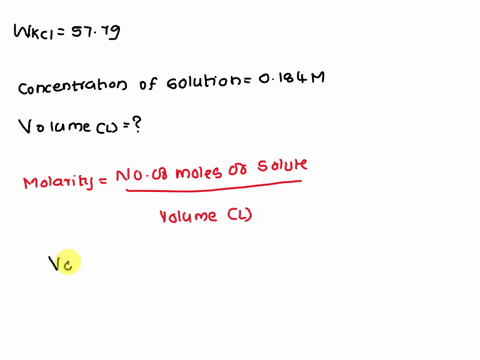 WKCl = 57.79
Concentration of solution = 0.184 M
Volume (L) = ?
Molarity = No. of moles of solute
Volume (L)
Vo